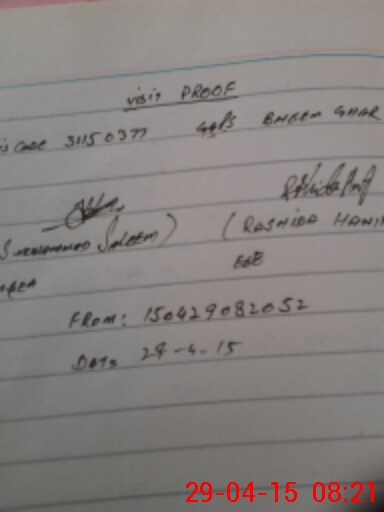 visit PROOF
is code 31150377 GGPS BHEEM GHAR
Saleem) (RASHIDA HANI
EGE
FROM: 150429082052
DATE 29-4-15
29-04-15 08:21